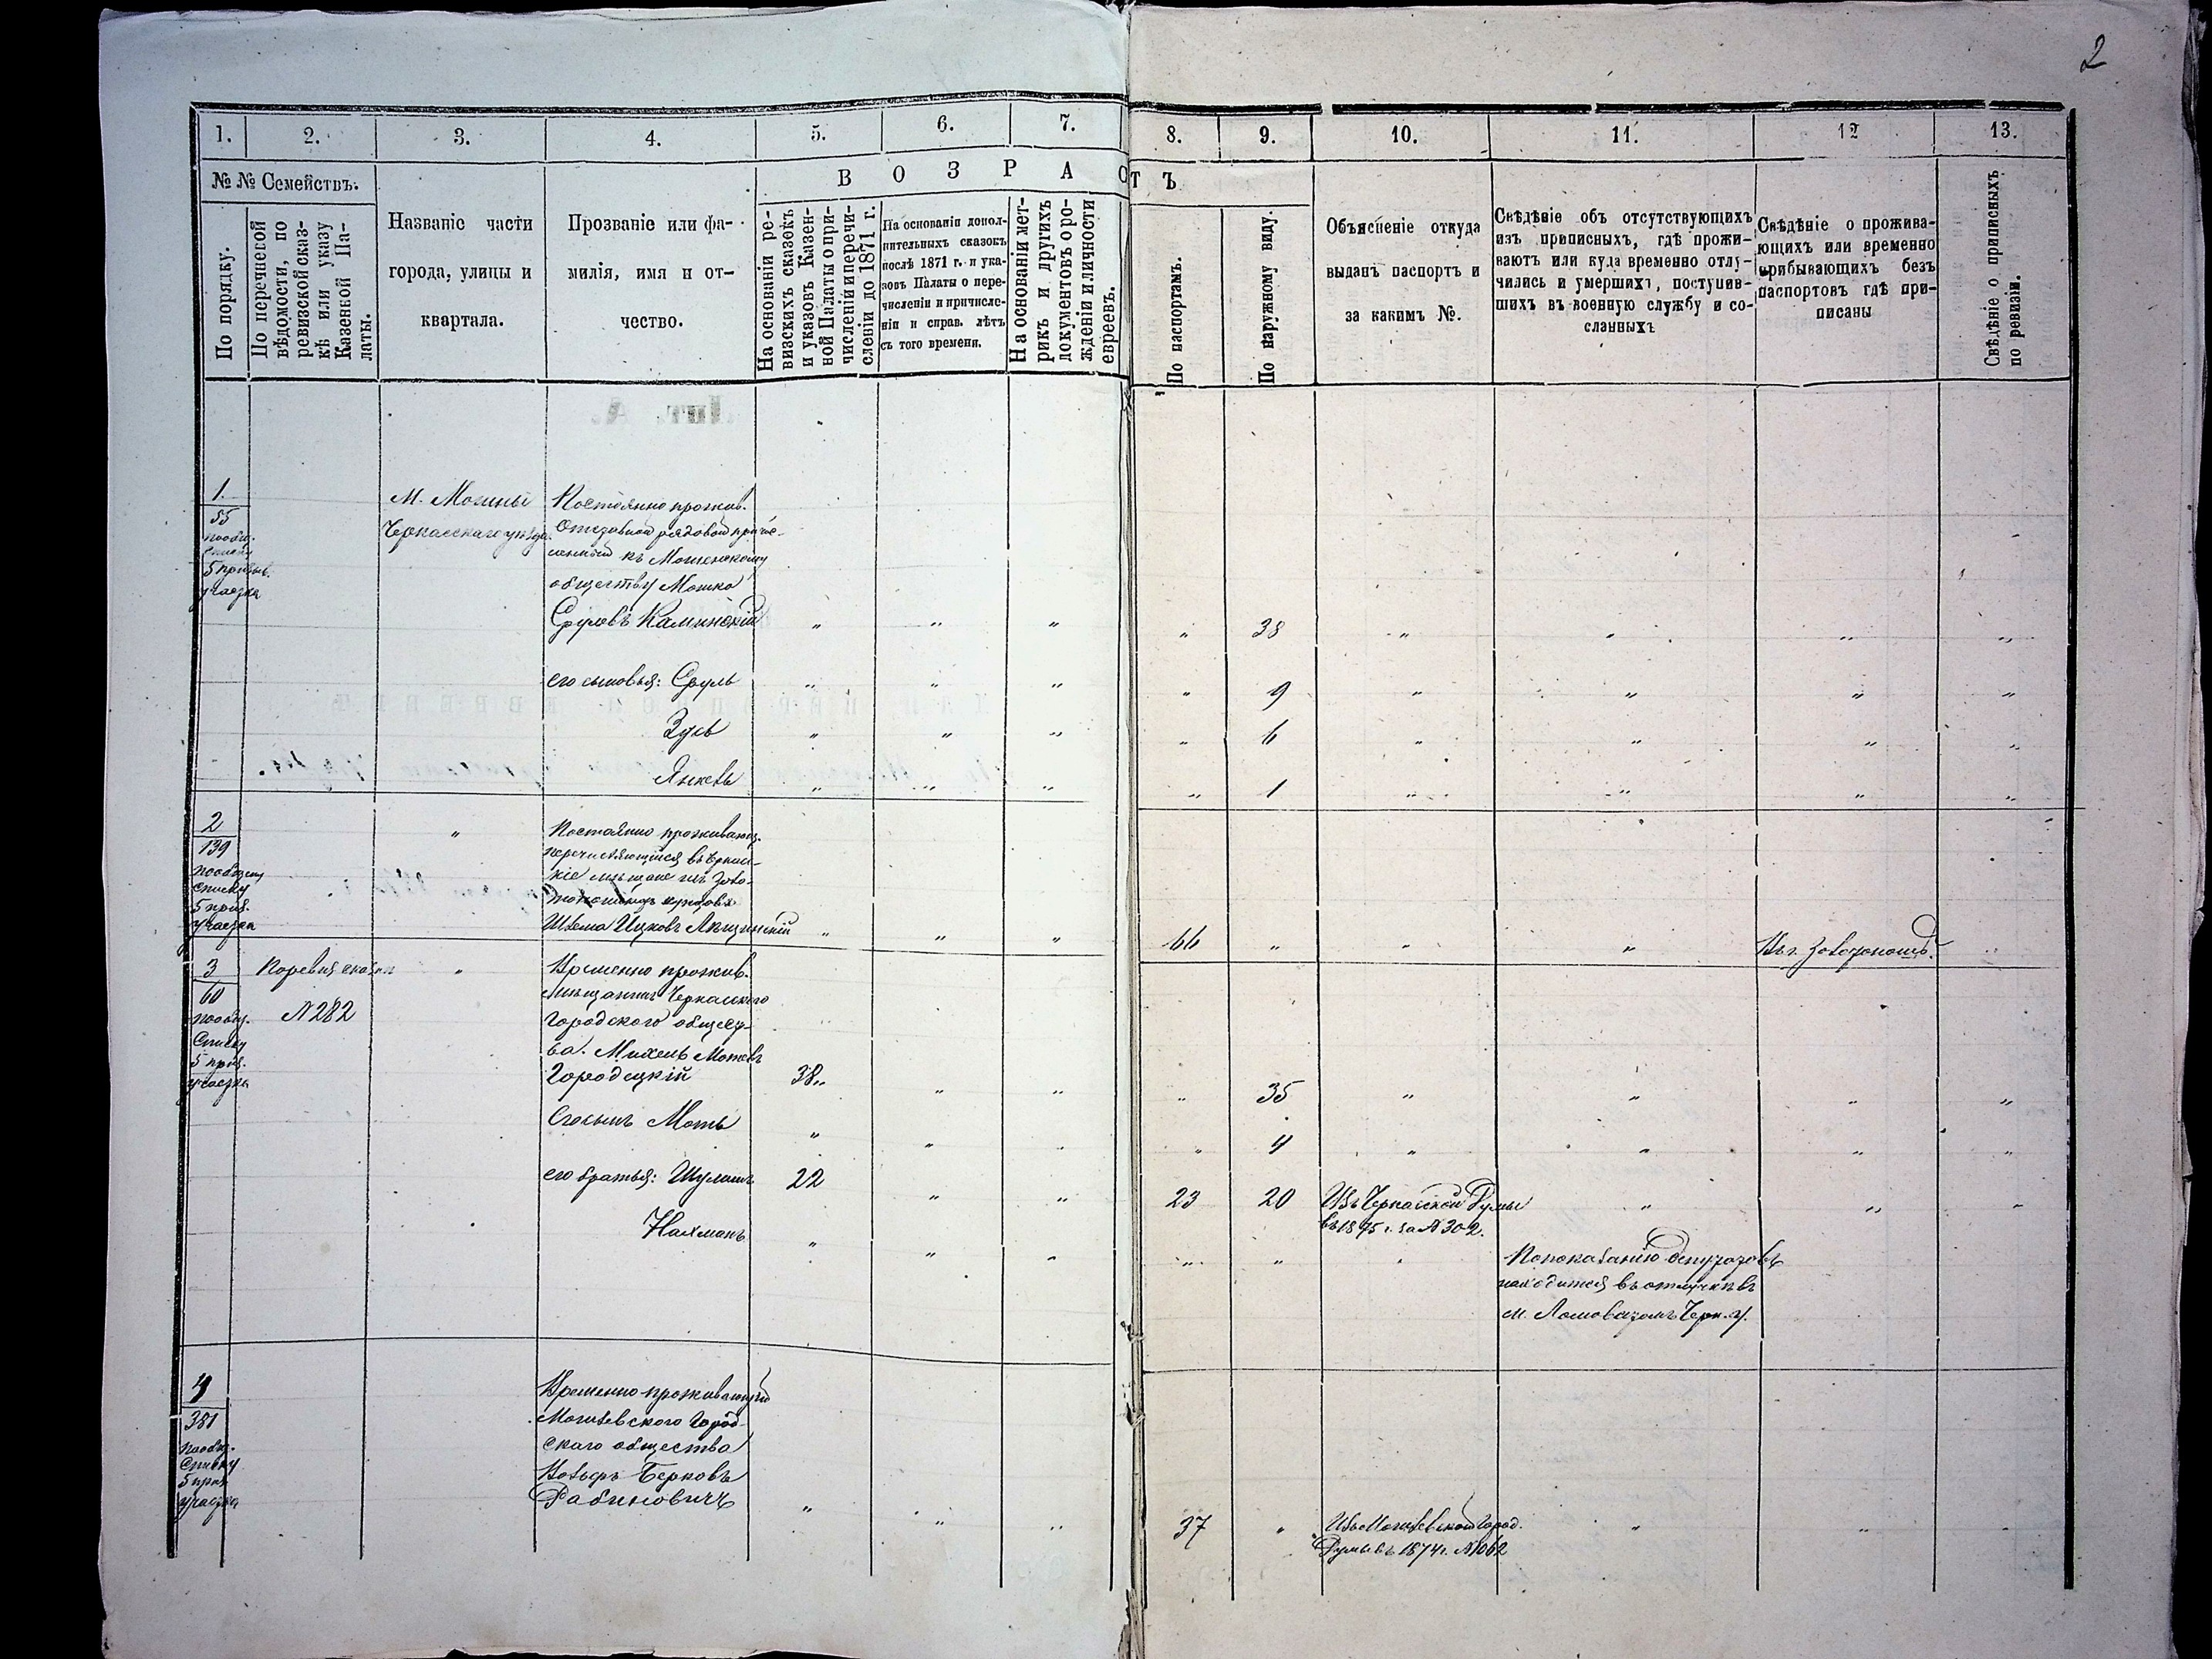 2
1. 2. 3. 4. 5. 6. 7. 8. 9. 10. 11. 12 13.
№ № Семействъ.
ВОЗРАСТЪ
По порядку.
По перечневой
вѣдомости, по
ревизской сказ-
кѣ или указу
Казенной Па-
латы.
Названіе части
города, улицы и
квартала.
Прозваніе или фа-
милія, имя и от-
чество.
На основаніи ре-
визскихъ сказокъ
и указовъ Казен-
ной Палаты о при-
численіи и перечи-
сленіи до 1871 г.
На основаніи допол-
нительныхъ сказокъ
послѣ 1871 г. и ука-
зовъ Палаты о пере-
численіи и причисле-
ніи и справ. лѣтъ
съ того времени.
На основаніи мет-
рикъ и другихъ
документовъ о ро-
жденіи и личности
евреевъ.
По паспортамъ.
По наружному виду.
Объясненіе откуда
выданъ паспортъ и
за какимъ №.
Свѣдѣніе объ отсутствующихъ
изъ приписныхъ, гдѣ прожи-
ваютъ или куда временно отлу-
чились и умершихъ, поступив-
шихъ въ военную службу и со-
сланныхъ
Свѣдѣніе о прожива-
ющихъ или временно
прибывающихъ безъ
паспортовъ гдѣ при-
писаны
Свѣдѣніе о приписныхъ
по ревизіи.
1
55
по общ.
списку
5 призыв.
участка
М. Мошны
Черкасскаго уѣзда
Постоянно прожив.
Отставной рядовой причис-
ленный къ Мошенскому
обществу Мошко
Срулевъ Каминскій " " " " 38 " " " "
его сыновья: Сруль " " " " 9 " " " "
Зусь " " " " 6 " " " "
Янкель " " " " 1 " " " "
2
139
по общему
списку
5 приз.
участка
"
Постоянно проживающ.
перечисляющійся въ Черкас-
кіе мѣщане изъ Золо-
тоношскихъ купцовъ
Шлема Ицковъ Лящинскій " " " 66 " " " Въ г. Золотоношѣ. "
3
60
по общ.
списку
5 приз.
участка
По ревиз. сказкѣ
№ 282
"
Временно прожив.
мѣщанинъ Черкаскаго
Городского общест-
ва. Михель Мотевъ
Городецкій 38 " " " 35 " " " "
Его сынъ Моть " " " " 4 " " " "
его братья: Шулимъ 22 " " 23 20 Изъ Черкаской Думы
въ 1875 г. за № 302. " " "
Нахманъ " " " " " " По показанію депутатовъ
находится въ отлучкѣ въ
м. Ломоватомъ Черк. у.
4
381
по общ.
списку
5 приз.
участка
Временно проживающій
Могилевского Город-
скаго общества
Вольфъ Берковъ
Рабиновичъ " " " 37 " Изъ Могилевской Город.
Думы въ 1874 г. № 1062 " " "